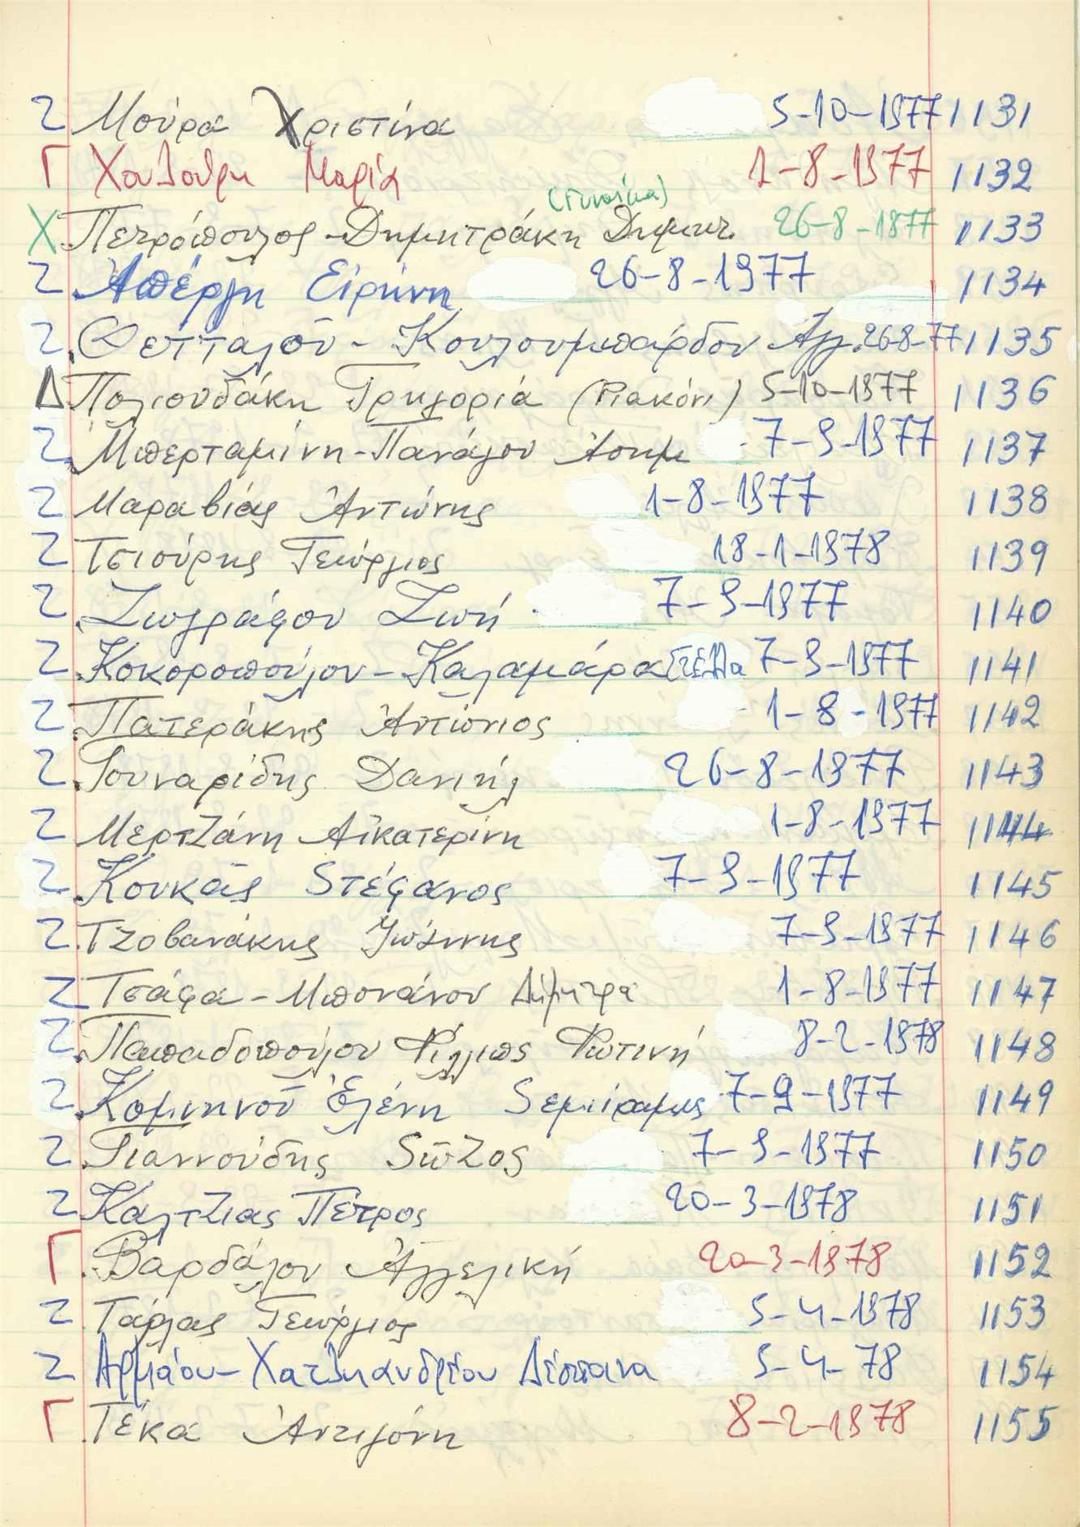 Ζ Μούρα Χριστίνα 5-10-1977 1131
Γ Χουλούρη Μαρία 1-8-1977 1132
(Γυναίκα)
Χ Πετρόπουλος-Δημητράκη Δημητ. 26-8-1977 1133
Ζ Απέργη Ειρήνη 26-8-1977 1134
Ζ Θετταλού - Κουλουμπάρδου Αγγ. 26-8-77 1135
Δ Πολιουδάκη Γρηγορία 5-10-1977 1136
Ζ Μπερταμίνη-Πανάγου Ασημ 7-9-1977 1137
Ζ Μαραβιάς Αντώνης 1-8-1977 1138
Ζ Τσιούρης Γεώργιος 18-1-1978 1139
Ζ Ζωγράφου Ζωή 7-9-1977 1140
Ζ Κοκοροπούλου-Καλαμάρα Στέλλα 7-9-1977 1141
Ζ Πατεράκης Αντώνιος 1-8-1977 1142
Ζ Γουναρίδης Δανιήλ 26-8-1977 1143
Ζ Μερτζάνη Αικατερίνη 1-8-1977 1144
Ζ Κουκάς Στέφανος 7-9-1977 1145
Ζ Τζοβανάκης Ιωάννης 7-9-1977 1146
Ζ Τσάφα-Μπονάνου Δήμητρα 1-8-1977 1147
Ζ Παπαδοπούλου Φίλιππος Φωτινή 8-2-1978 1148
Ζ Κομνηνού Ελένη Σεμίραμις 7-9-1977 1149
Ζ Γιαννούδης Σώζος 7-9-1977 1150
Ζ Καλτζιας Πέτρος 20-3-1978 1151
Γ Βαρδάλου Αγγελική 20-3-1978 1152
Ζ Γεώργιος 5-4-1978 1153
Ζ Δέσποινα 5-4-78 1154
Γ Τέκα Αντιγόνη 8-2-1978 1155